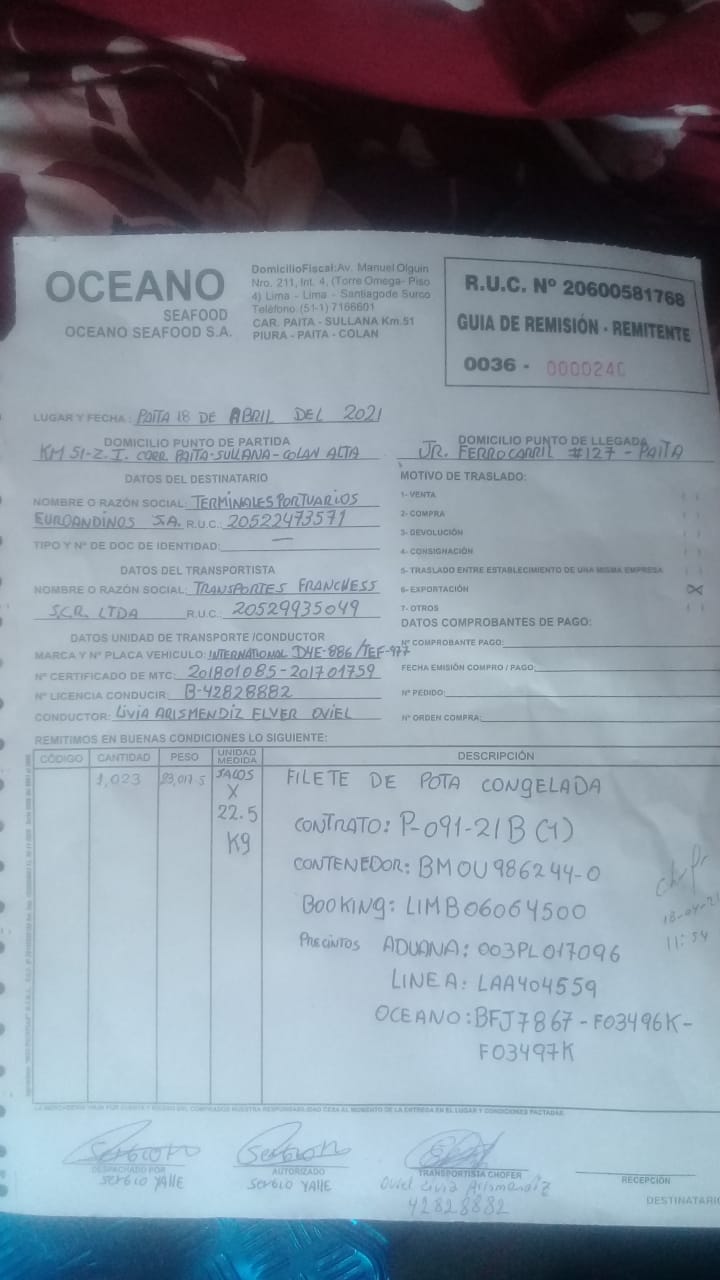 OCEANO
SEAFOOD
OCEANO SEAFOOD S.A.
DomicilioFiscal:Av. Manuel Olguin
Nro. 211, Int. 4, (Torre Omega- Piso
4) Lima - Lima - Santiagode Surco
Teléfono (51-1) 7166601
CAR. PAITA - SULLANA Km.51
PIURA - PAITA - COLAN
R.U.C. Nº 20600581768
GUIA DE REMISIÓN - REMITENTE
0036 - 0000240
LUGAR Y FECHA : PAITA 18 DE ABRIL DEL 2021
DOMICILIO PUNTO DE PARTIDA
KM 51-Z.I. CARR PAITA-SULLANA-COLAN ALTA
DOMICILIO PUNTO DE LLEGADA
JR. FERROCARRIL #127 - PAITA
DATOS DEL DESTINATARIO
NOMBRE O RAZÓN SOCIAL: TERMINALES PORTUARIOS
EUROANDINOS S.A. R.U.C.: 20522473571
TIPO Y Nº DE DOC DE IDENTIDAD: —
DATOS DEL TRANSPORTISTA
NOMBRE O RAZÓN SOCIAL: TRANSPORTES FRANCHESS
S.C.R. LTDA R.U.C.: 20529935049
DATOS UNIDAD DE TRANSPORTE /CONDUCTOR
MARCA Y Nº PLACA VEHICULO: INTERNATIONAL D4E-886/TEF-977
Nº CERTIFICADO DE MTC: 201801085-201701759
Nº LICENCIA CONDUCIR: B-42828882
CONDUCTOR: LIVIA ARISMENDIZ ELVER OVIEL
MOTIVO DE TRASLADO:
1- VENTA
2- COMPRA
3- DEVOLUCIÓN
4- CONSIGNACIÓN
5- TRASLADO ENTRE ESTABLECIMIENTO DE UNA MISMA EMPRESA
6- EXPORTACIÓN X
7- OTROS
DATOS COMPROBANTES DE PAGO:
Nº COMPROBANTE PAGO:
FECHA EMISIÓN COMPRO / PAGO:
Nº PEDIDO:
Nº ORDEN COMPRA:
REMITIMOS EN BUENAS CONDICIONES LO SIGUIENTE:
CÓDIGO CANTIDAD PESO UNIDAD MEDIDA DESCRIPCIÓN
1,023 23,017.5 SACOS FILETE DE POTA CONGELADA
X
22.5
Kg
CONTRATO: P-091-21B (1)
CONTENEDOR: BMOU 986244-0
BOOKING: LIMB06064500
PRECINTOS ADUANA: 003PL017096
LINEA: LAA404559
OCEANO: BFJ7867 - F03496K-
F03497K
18-04-21
11:54
LA MERCADERIA VIAJA POR CUENTA Y RIESGO DEL COMPRADOR NUESTRA RESPONSABILIDAD CESA AL MOMENTO DE LA ENTREGA EN EL LUGAR Y CONDICIONES PACTADAS.
DESPACHADO POR
SERGIO YALLE
AUTORIZADO
SERGIO YALLE
TRANSPORTISTA CHOFER
Oviel Livia Arismendiz
42828882
RECEPCIÓN
DESTINATARIO